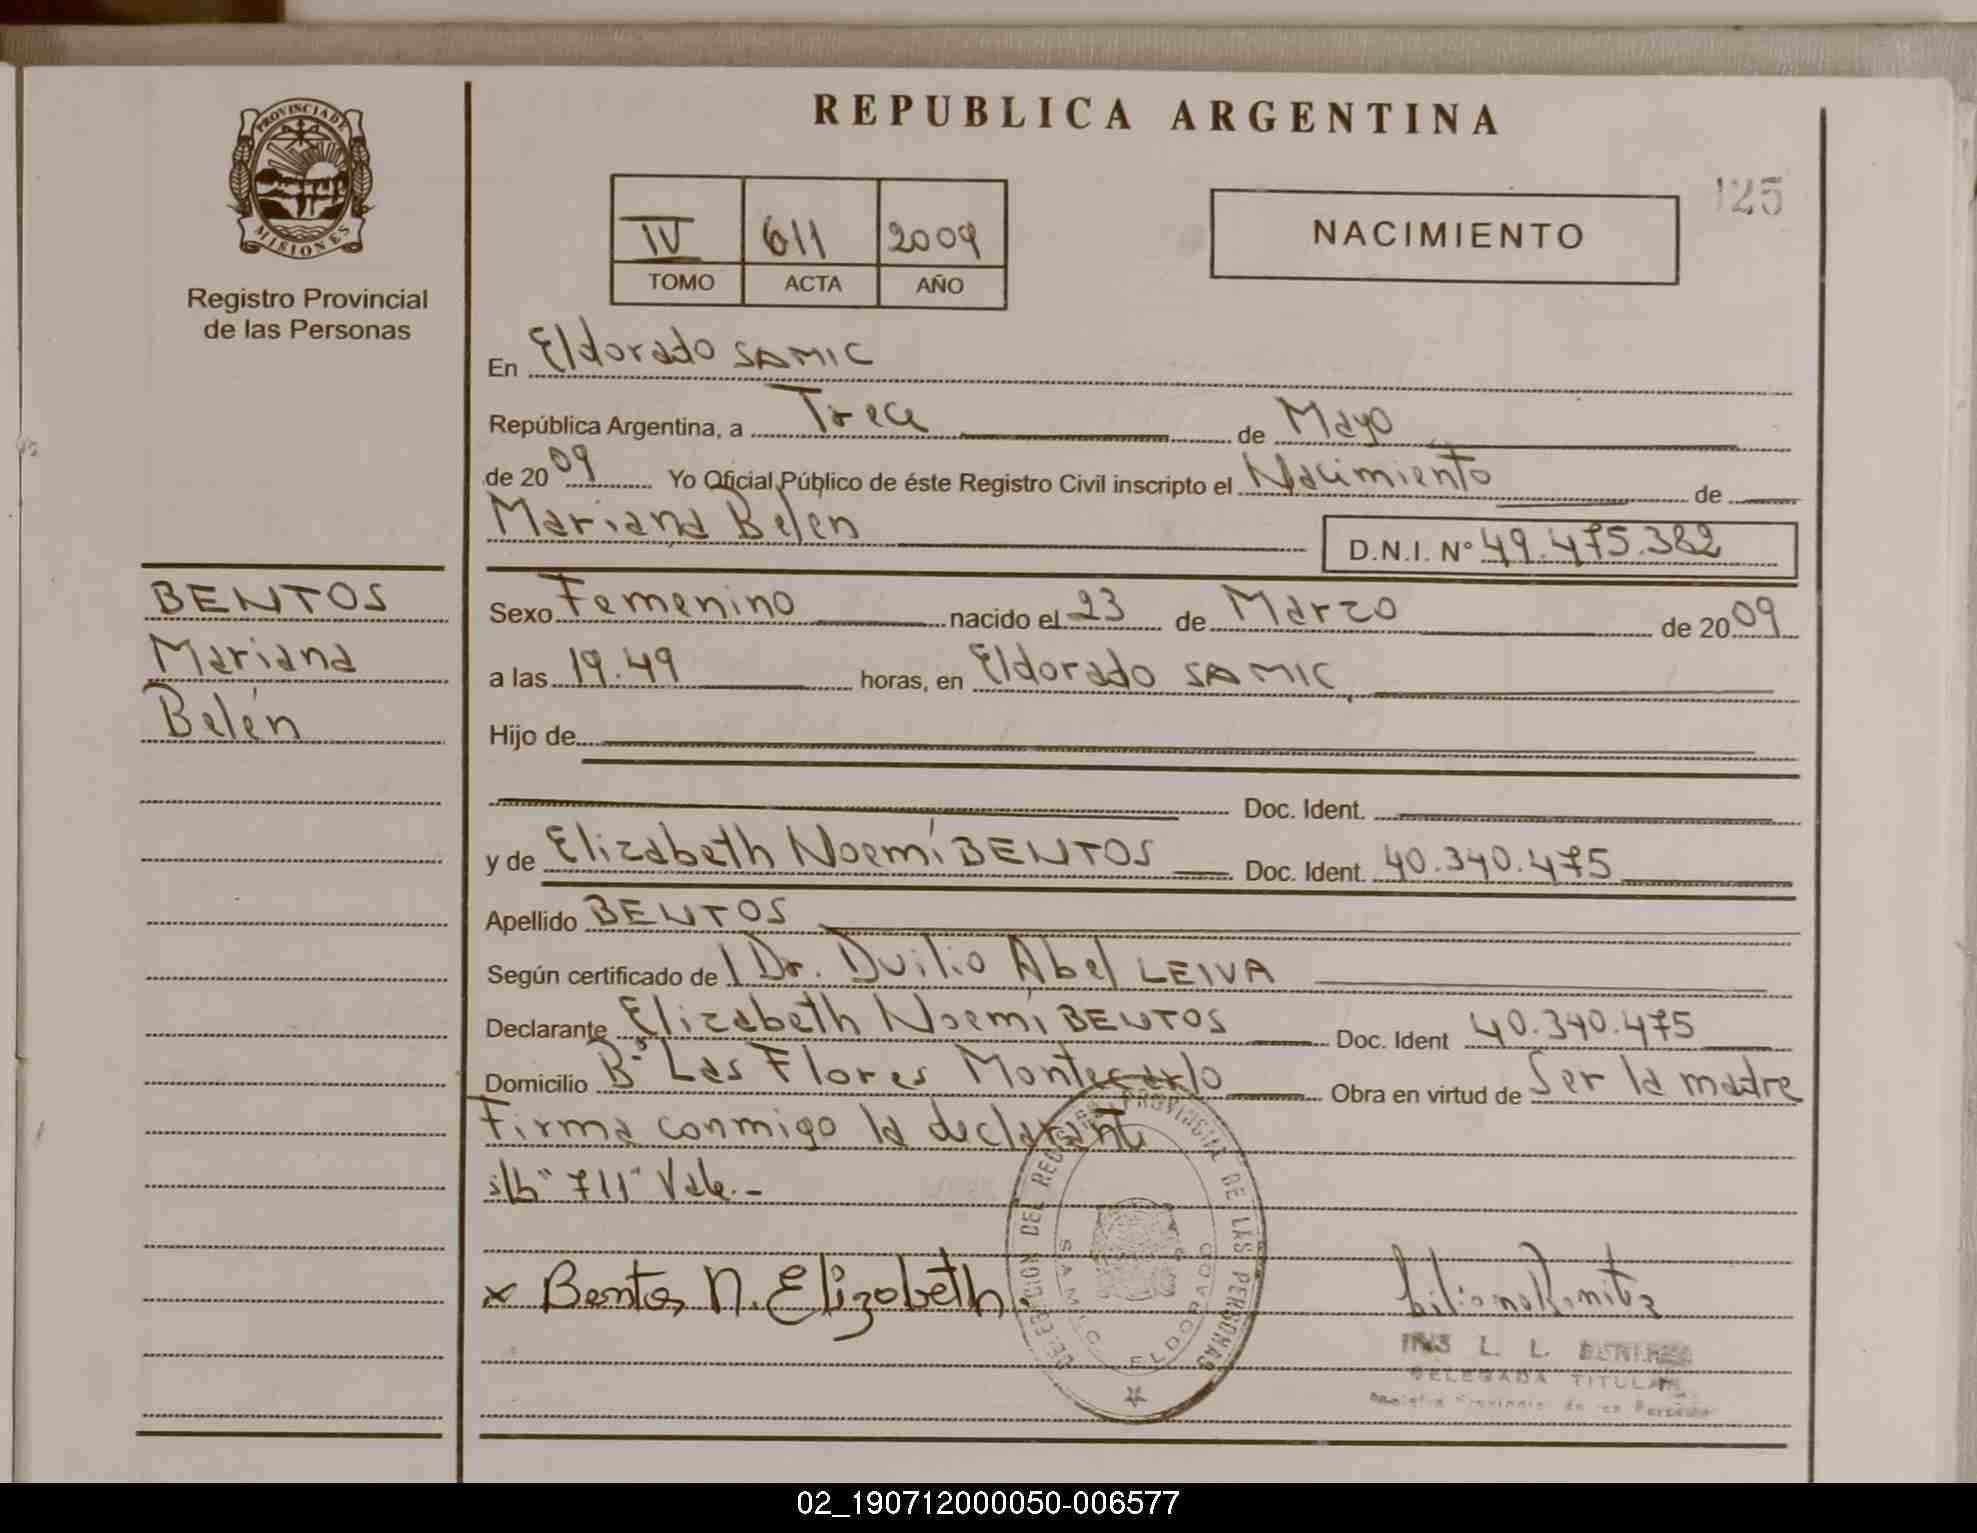 REPUBLICA ARGENTINA
PROVINCIA DE
MISIONES
Registro Provincial
de las Personas
IV 611 2009
TOMO ACTA AÑO
NACIMIENTO
125
En Eldorado SAMIC
República Argentina, a Trece de Mayo
de 2009 Yo Oficial Público de éste Registro Civil inscripto el Nacimiento de
Mariana Belen D.N.I. N° 49.475.382
BENTOS
Mariana
Belén
Sexo Femenino nacido el 23 de Marzo de 2009
a las 19.49 horas, en Eldorado SAMIC
Hijo de
Doc. Ident.
y de Elizabeth Noemí BENTOS Doc. Ident. 40.340.475
Apellido BENTOS
Según certificado de Dr. Duilio Abel LEIVA
Declarante Elizabeth Noemí BENTOS Doc. Ident 40.340.475
Domicilio B° Las Flores Montecarlo Obra en virtud de Ser la madre
Firma conmigo la declarante
s/b "711" Vale.-
x Bentos N. Elizabeth
DELEGACION DEL REGISTRO PROVINCIAL DE LAS PERSONAS
S.A.M.I.C. ELDORADO
L. L.
DELEGADA TITULAR
02_190712000050-006577